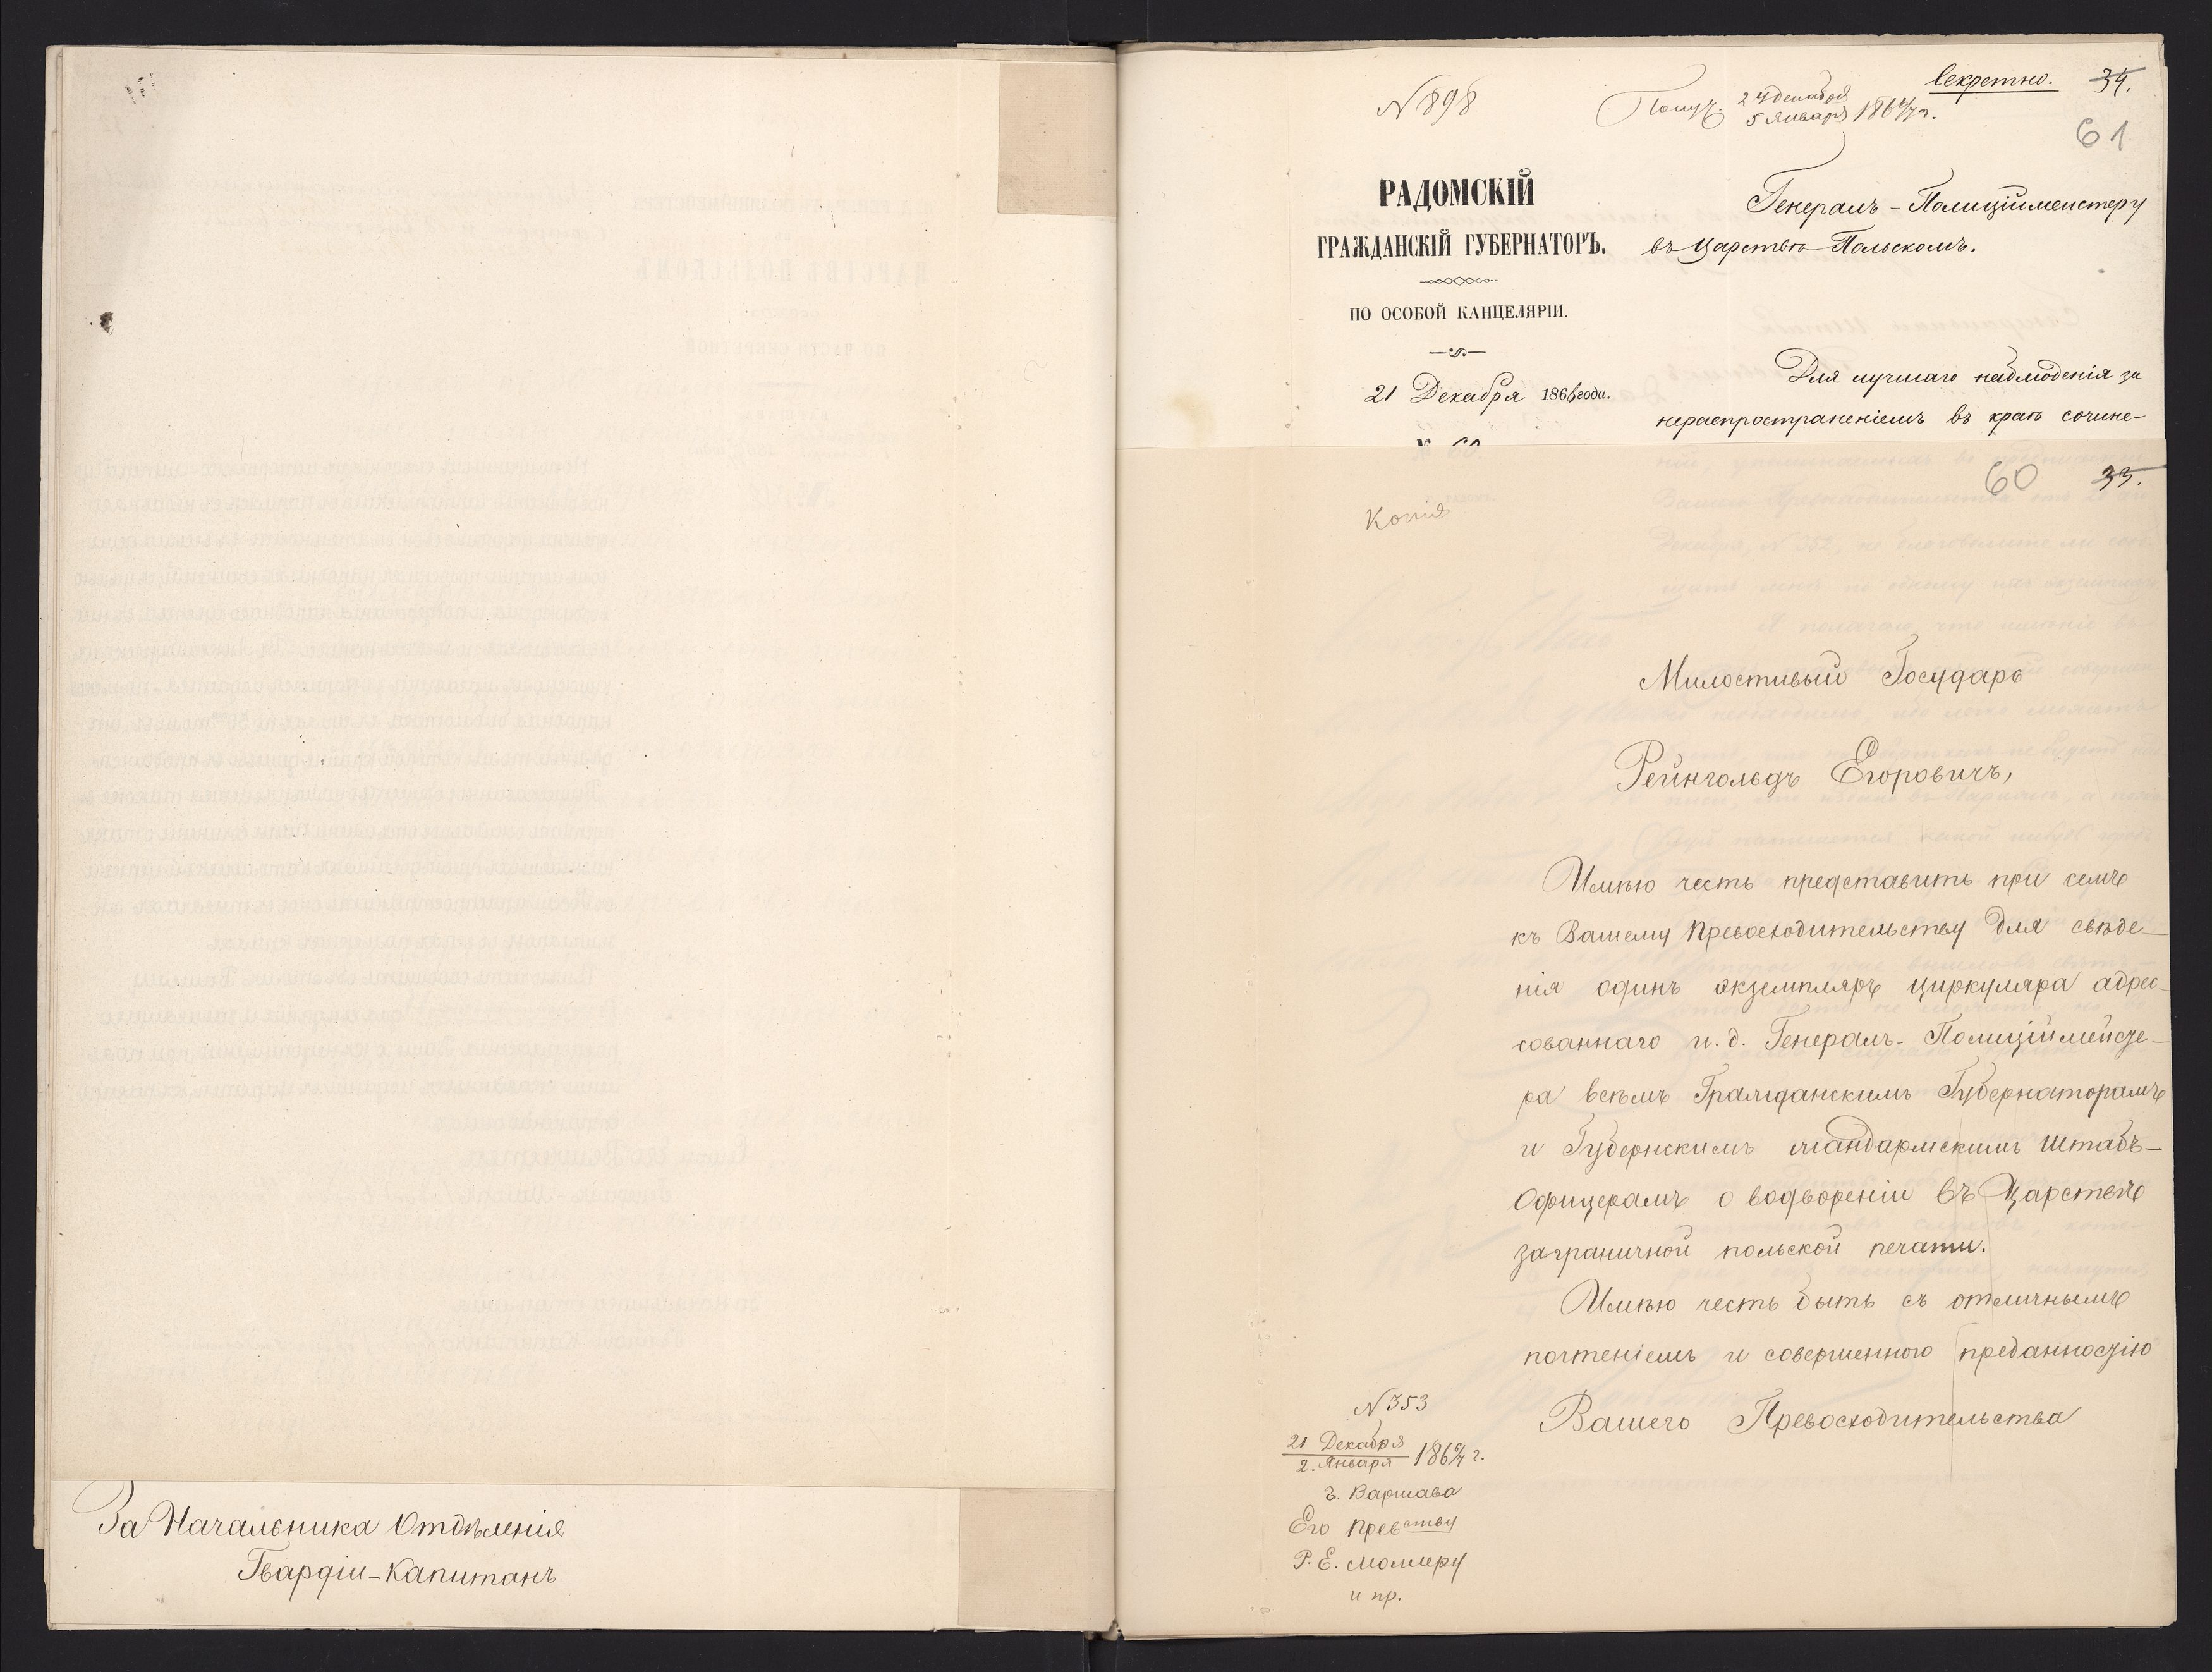 За Начальника Отдѣленія
Гвардіи-Капитанъ
Секретно. 34.
N 898
Получ. 24 декабря
5 Января 1866/7 г.
61
РАДОМСКІЙ
ГРАЖДАНСКІЙ ГУБЕРНАТОРЪ.
ПО ОСОБОЙ КАНЦЕЛЯРІИ.
21 Декабря 1866 года.
№ 60.
Генералъ-Полиціймейстеру
въ Царствѣ Польскомъ.
Для лучшаго наблюденія за
нераспространеніемъ въ краѣ сочине-
60 33.
Копія
Милостивый Государь
Рейнгольдъ Егоровичъ,
Имѣю честь представить при семъ
къ Вашему Превосходительству для свѣде-
нія одинъ экземпляръ циркуляра адрес-
сованнаго и. д. Генералъ-Полиціймейсте-
ра всѣмъ Гражданскимъ Губернаторамъ
и Губернскимъ жандармскимъ Штабъ-
Офицерамъ о водвореніи въ Царствѣ
заграничной польской печати.
Имѣю честь быть съ отличнымъ
почтеніемъ и совершенного преданностію
Вашего Превосходительства
N 353
21 Декабря
2. Января 1866/7 г.
г. Варшава
Его Превству
Р. Е. Моллеру
и пр.